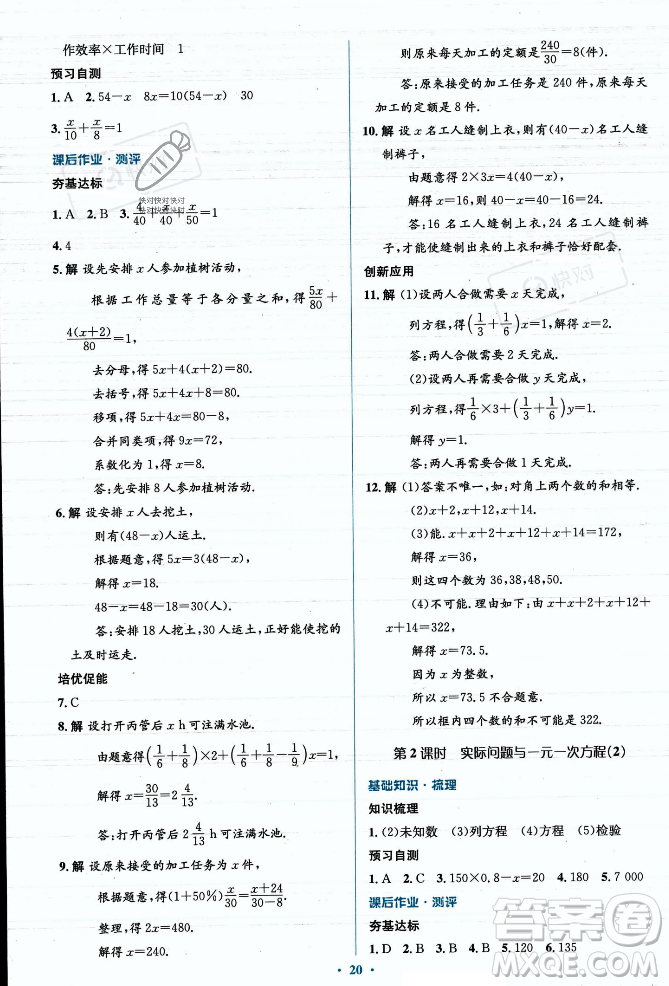 作效率×工作时间 1
预习自测
1.A 2.54-x 8x=10(54-x) 30
3.x/10+x/8=1
课后作业·测评
夯基达标
1.A 2.B 3.4/40+x/40+x/50=1
4.4
5.解 设先安排 x 人参加植树活动,
根据工作总量等于各分量之和,得5x/80+
4(x+2)/80=1,
去分母,得 5x+4(x+2)=80.
去括号,得 5x+4x+8=80.
移项,得 5x+4x=80-8.
合并同类项,得 9x=72,
系数化为 1,得 x=8.
答:先安排 8 人参加植树活动.
6.解 设安排 x 人挖土,
则有(48-x)人运土.
根据题意,得 5x=3(48-x),
解得 x=18.
48-x=48-18=30.
答:安排 18 人挖土,30 人运土,正好能使挖的
土及时运走.
培优促能
7.C
8.解 设打开丙管后 x h 可注满水池.
由题意,得(1/6+1/8)(x+2)-1/9x=1,
解得 x=30/13=2 4/13.
答:打开丙管后 2 4/13 h 可注满水池.
9.解 设原来接受的加工任务为 x 件.
根据题意,得(1+50%)x/30=(x+24)/(30-3).
整理,得 2x=480.
解得 x=240.
则原来每天加工的定额是240/30=8(件).
答:原来接受的加工任务是 240 件,原来每天
加工的定额是 8 件.
10.解 设 x 名工人缝制上衣,则有(40-x)名工人缝
制裤子,
由题意,得 2×3x=4(40-x),
解得 x=16.
答:16 名工人缝制上衣,24 名工人缝制裤
子,才能使缝制出来的上衣和裤子恰好配套.
创新应用
11.解 (1)设两人合做需要 x 天完成,
列方程,得(1/3+1/6)x=1,解得 x=2.
答:两人合做需要 2 天完成.
(2)设两人再需要合做 y 天完成,
列方程,得1/6×3+(1/3+1/6)y=1.
解得 y=1.
答:两人再需要合做 1 天完成.
12.解 (1)答案不唯一,如:对角上两个数的和相等.
(2)x+2,x+12,x+14.
(3)能. x+x+2+x+12+x+14=172,
解得 x=36,
则这四个数为 36,38,48,50.
(4)不可能. 理由:由题意,得 x+x+2+x+12+
x+14=322,
解得 x=73.5.
因为 x 为整数,
所以 x=73.5 不合题意.
所以框内四个数的和不可能是 322.
第 2 课时 实际问题与一元一次方程(2)
基础知识·梳理
知识梳理
1.(2)未知数 (3)列方程 (4)方程 (5)检验
预习自测
1.A 2.C 3.150×0.8-x=20 4.180 5.7 000
课后作业·测评
夯基达标
1.D 2.B 3.B 4.C 5.120 6.135
20